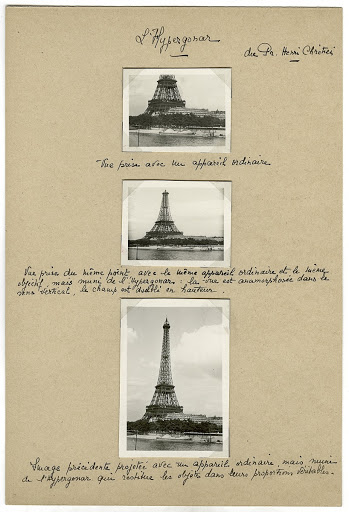 L'Hypergonar
du Pr. Henri Chrétien
Vue prise avec un appareil ordinaire
Vue prise du même point, avec le même appareil ordinaire et le même
objectif, mais muni de l'Hypergonar : la vue est anamorphosée dans le
sens vertical, le champ est doublé en hauteur.
Image précédente projetée avec un appareil ordinaire, mais muni
de l'Hypergonar qui restitue les objets dans leurs proportions véritables.